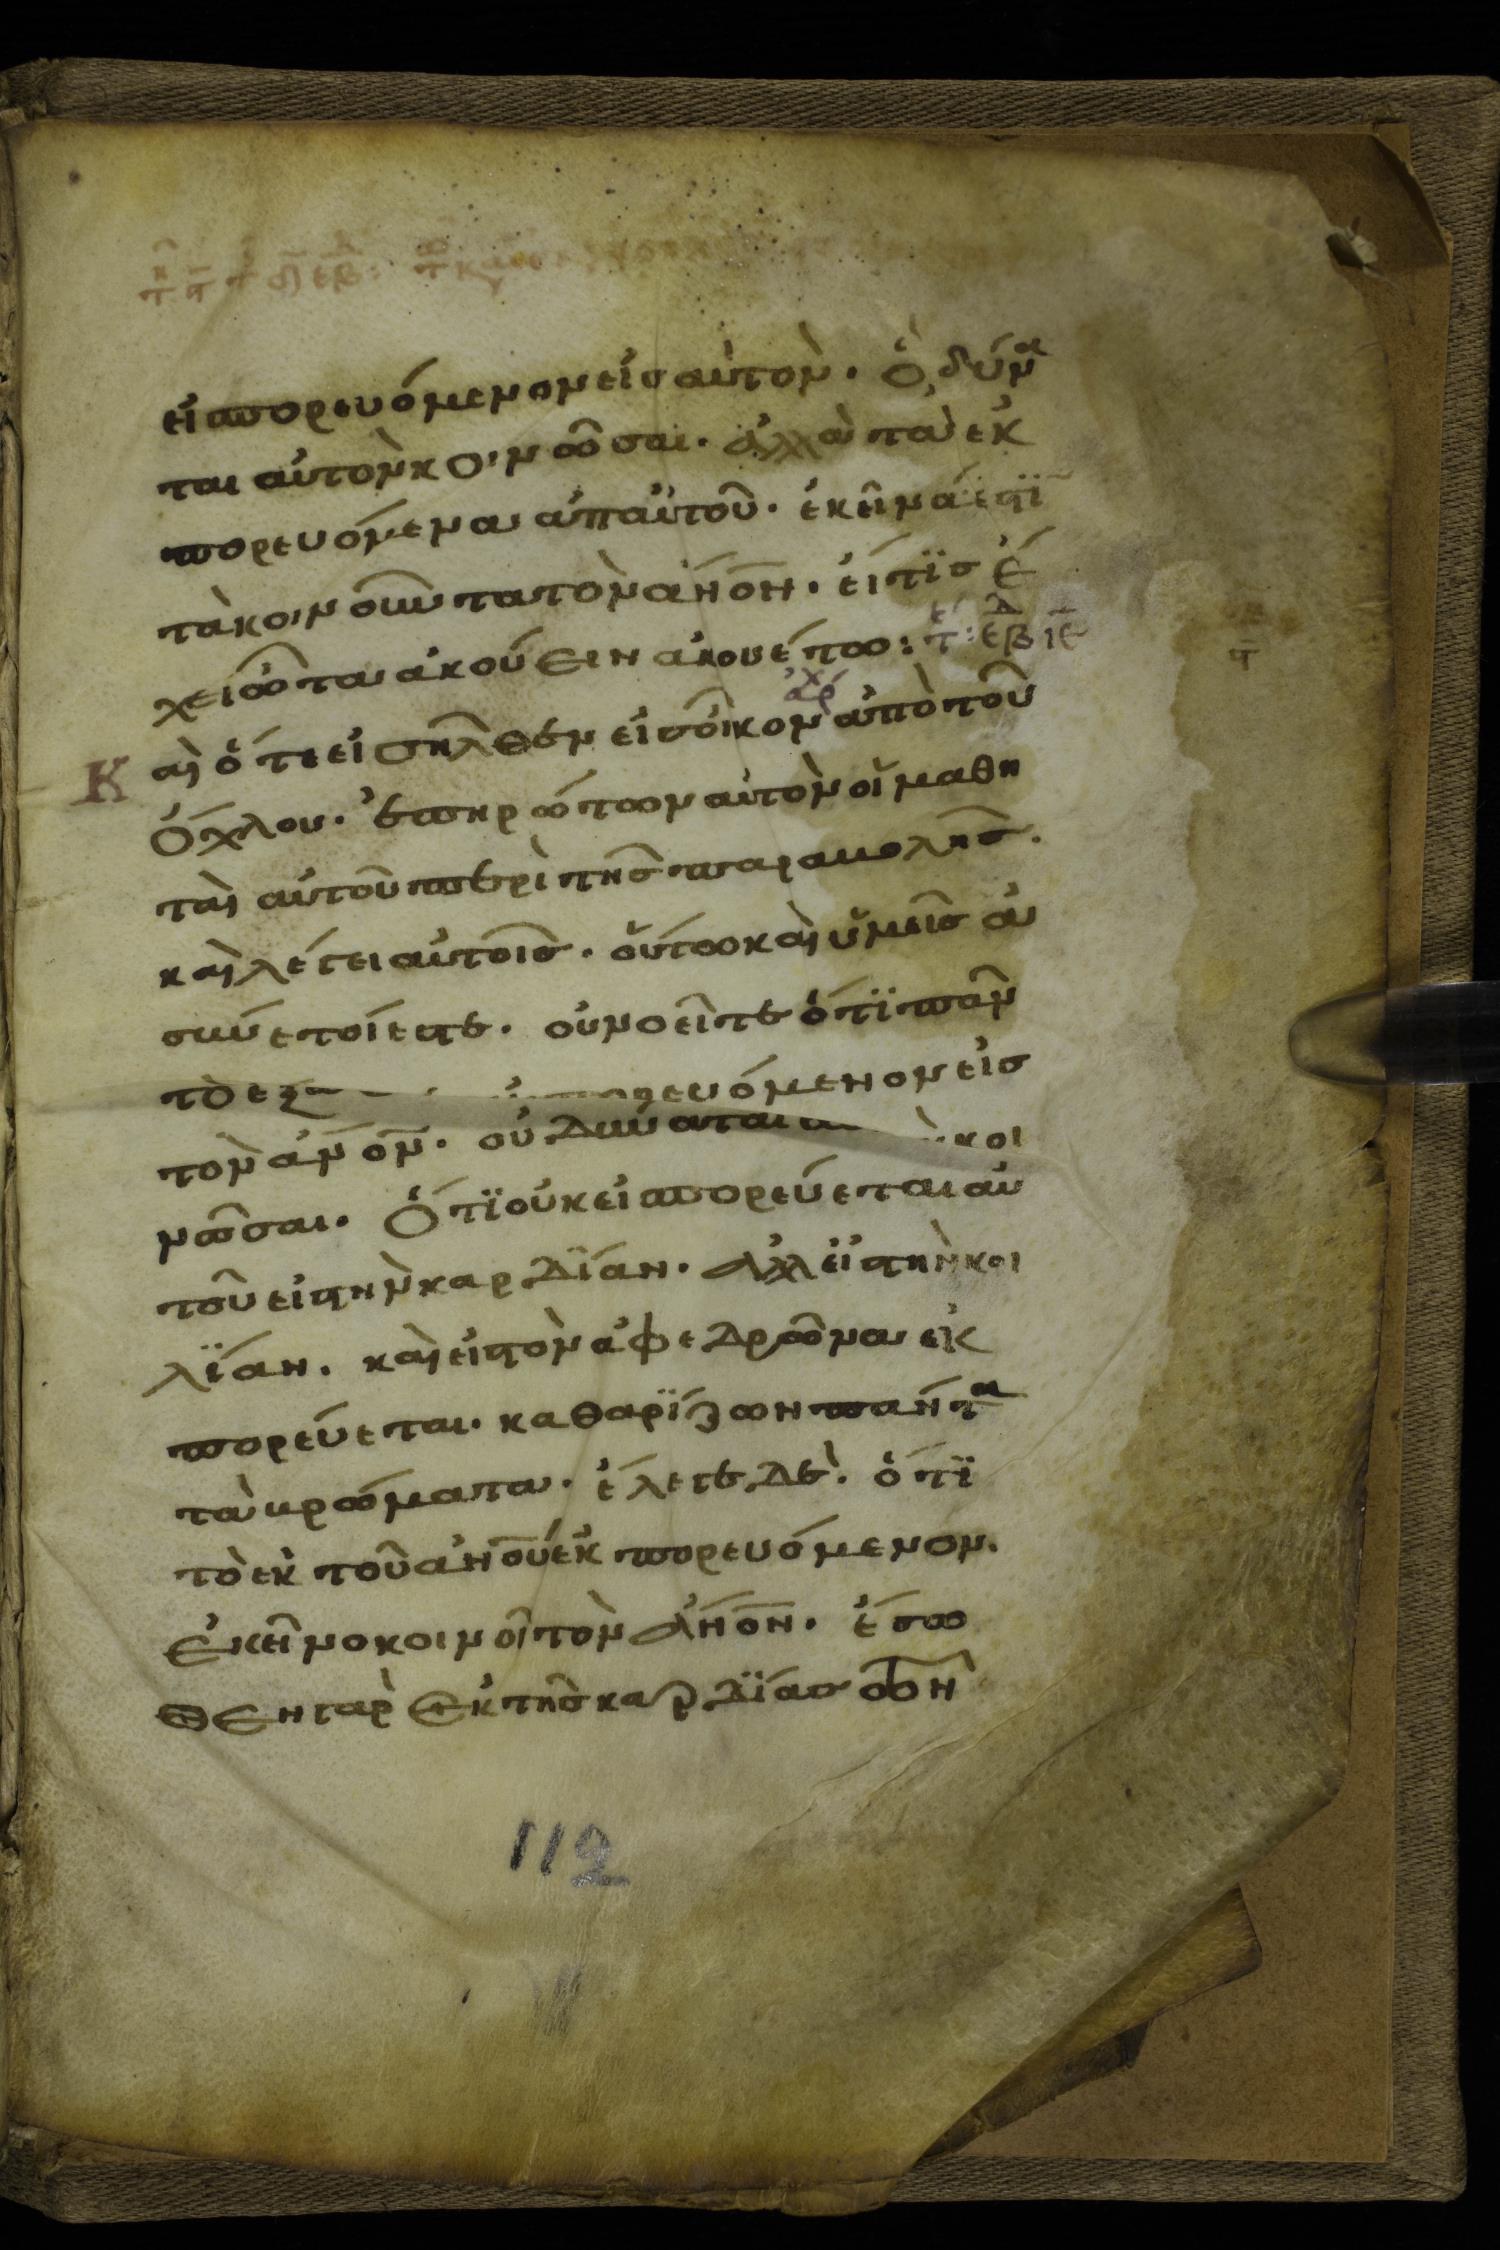 εἰπορευόμενον εἰσ αὐτὸν. ὃ δύνα
ται αὐτὸν κοινῶσαι. ἀλλὰ τὰ ἐκ
πορευόμενα ἀπ αὐτοῦ. ἐκεῖνά ἐστϊ
τὰ κοινοῦντα τὸν ἄνον. εἴ τϊσ ἔ
χει ὦτα ἀκούειν ἀκουέτω:
Καὶ ὅτε εἰσῆλθεν εἰσ οἶκον ἀπὸ τοῦ
ὄχλου. ἐπηρώτων αὐτὸν οἱ μαθη
ταὶ αὐτοῦ περὶ τῆσ παραβολῆσ.
καὶ λέγει αὐτοῖσ. οὕτω καὶ ὑμεῖσ ἀ
σύνετοί ἐστε. οὐ νοεῖτε ὅτϊ πᾶν
τὸ πορευόμενον εἰσ
τὸν ἄνον. οὐ δύναται κοι
νῶσαι. ὅτϊ οὐκ εἰπορεύεται αὐ
τοῦ εἰ τὴν καρδΐαν. ἀλλ εἰ τὴν κοι
λΐαν. καὶ εἰ τὸν ἀφεδρῶνα ἐκ
πορεύεται. καθαρΐζων πάντα
τὰ βρώματα. ἔλεγε δὲ. ὅτϊ
τὸ ἐκ τοῦ ἀνου ἐκπορευόμενον.
ἐκεῖνο κοινοῖ τὸν ἄνον. ἔσω
θεν γὰρ ἐκ τῆσ καρδΐασ τῶν
112